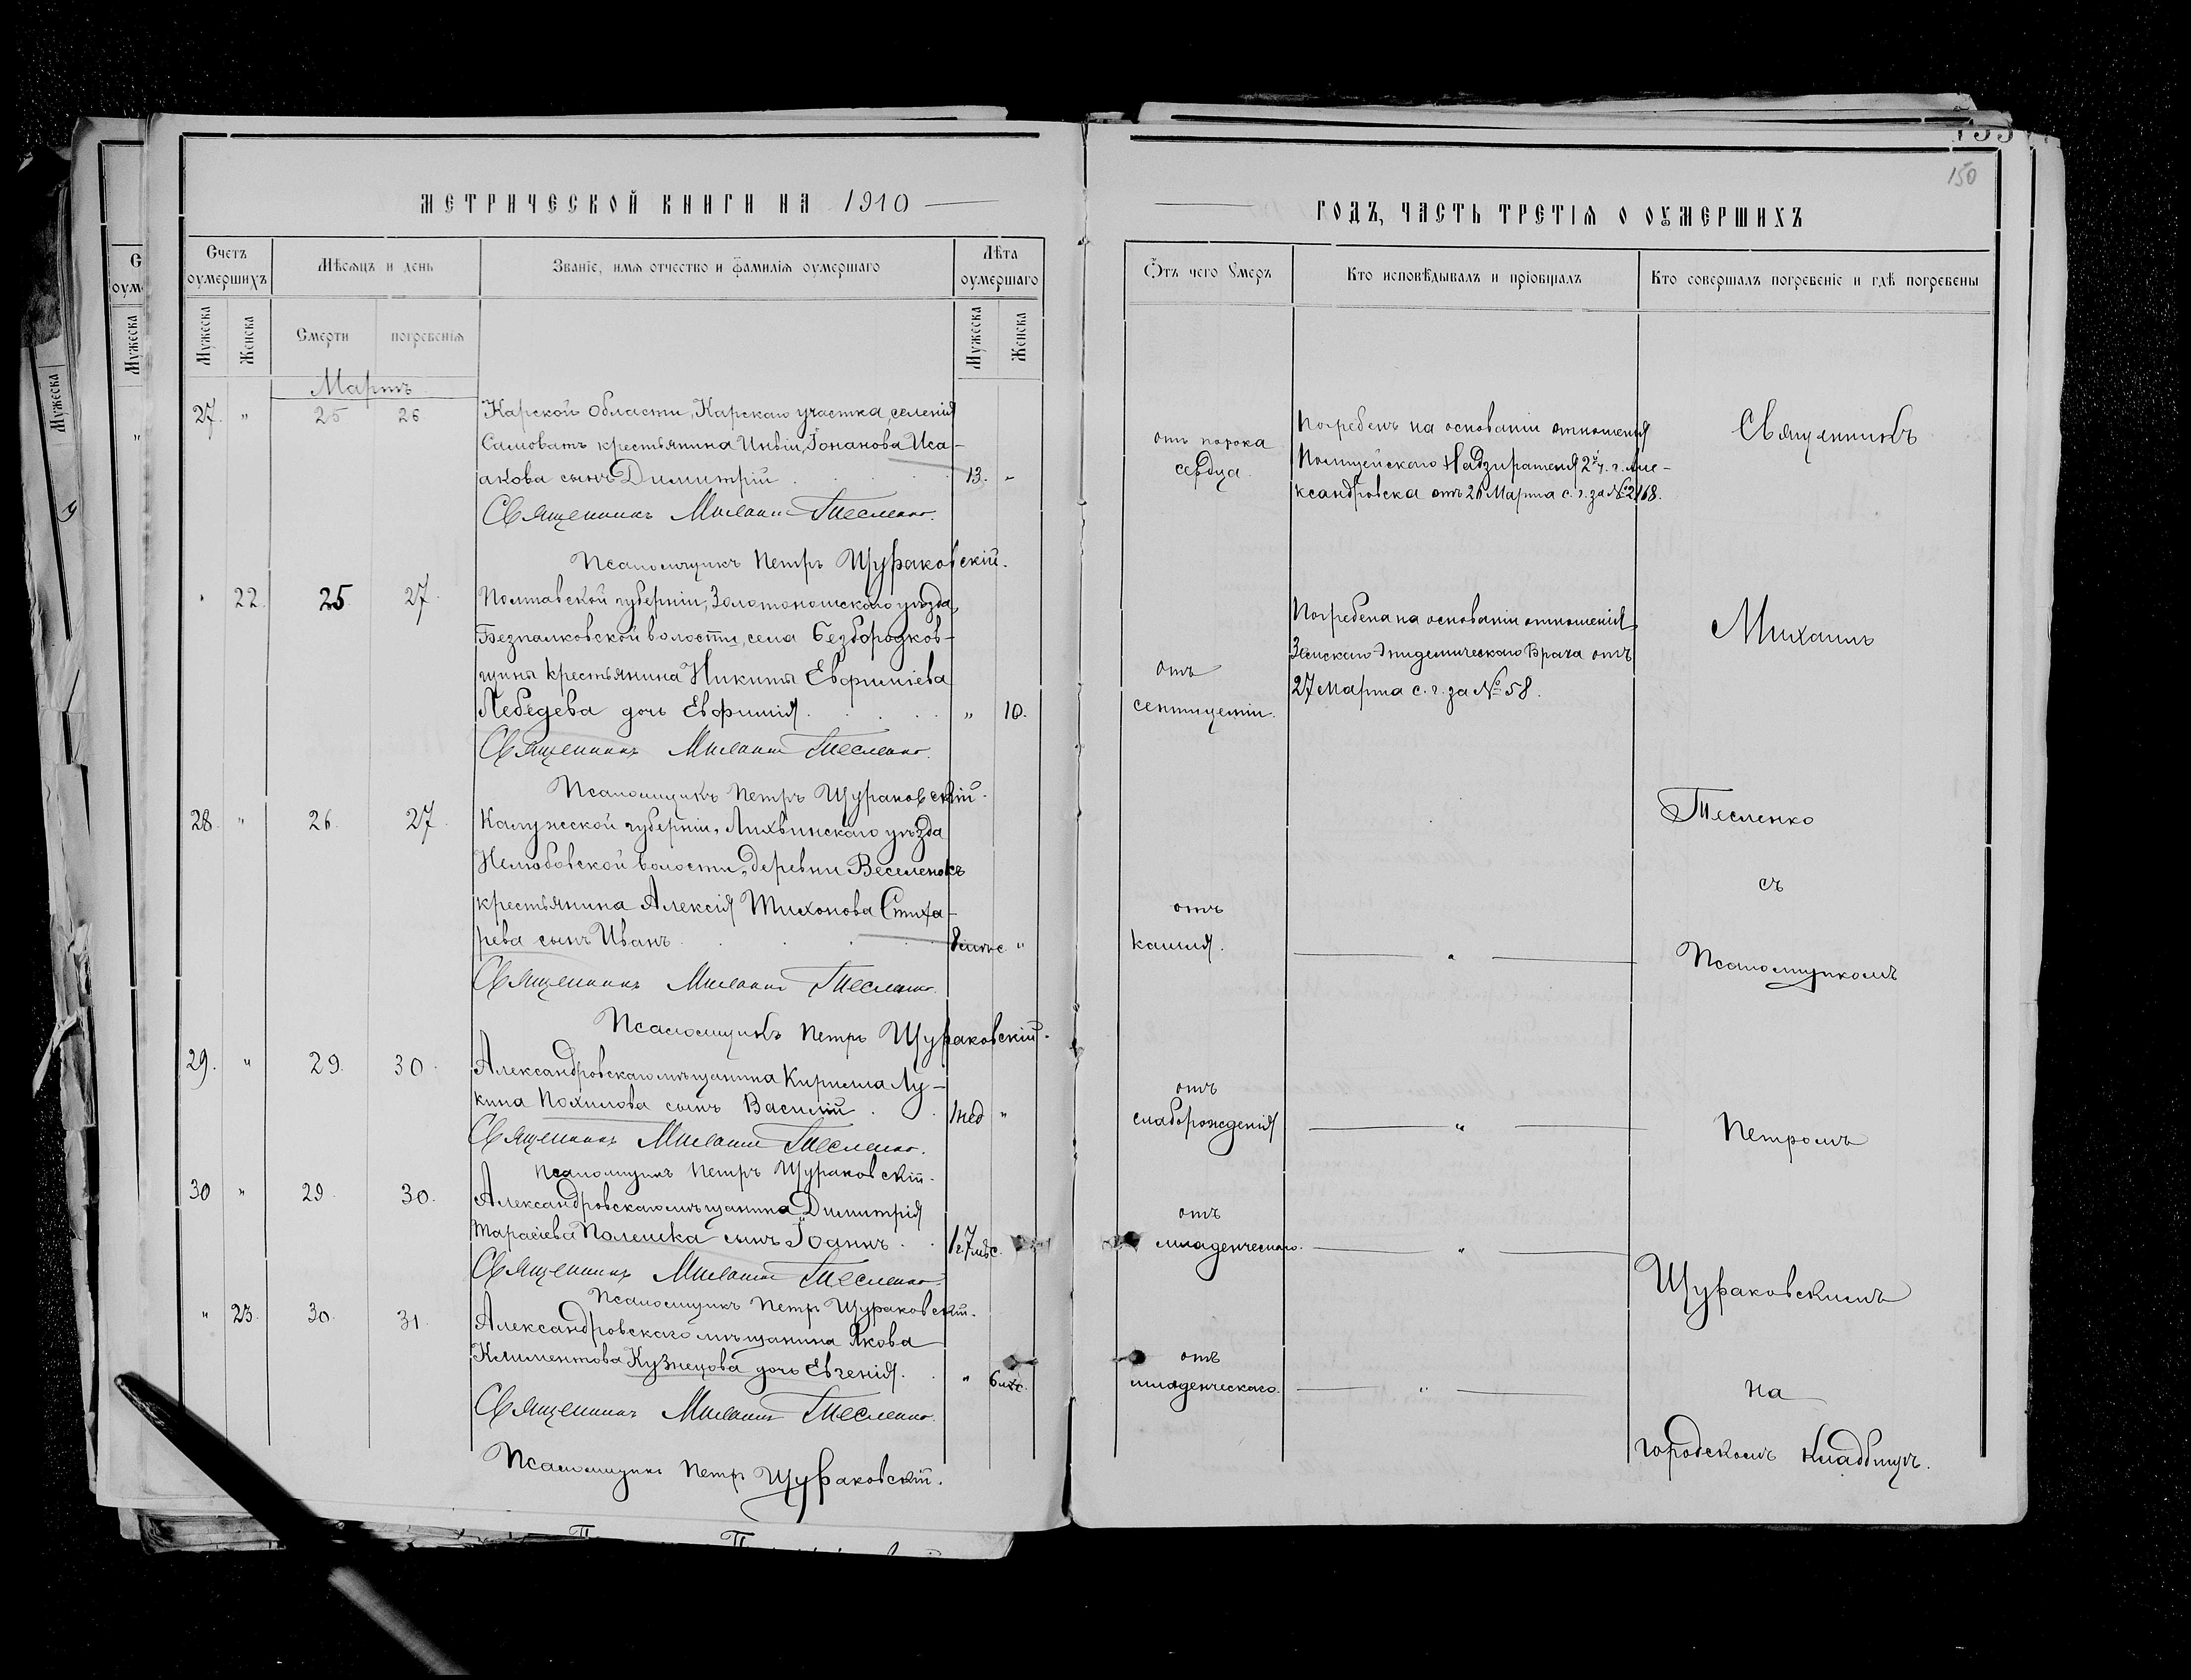 МЕТРИЧЕСКОЙ КНИГИ НА 1910
Счетъ оумершихъ
Мѣсяцъ и день
Званіе, имя отчество и фамилія оумершаго
Лѣта оумершаго
Мужеска
Женска
Смерти
погребенія
Мужеска
Женска
Мартъ
27. " 25 26 Карской области, Карскаго участка, селенія
Саловатъ крестьянина Ильи Іонанова Иса-
акова сынъ Димитрій 13. "
Священникъ Михаилъ Тесленко.
Псаломщикъ Петръ Щураковскій.
" 22. 25 27. Полтавской губерніи, Золотоношскаго уѣзда,
Безпалковской волости, села Безбородков-
щины крестьянина Никиты Евфиміева
Лебедева дочь Евфимія " 10.
Священникъ Михаилъ Тесленко.
Псаломщикъ Петръ Щураковскій.
28. " 26. 27. Калужской губерніи, Лихвинскаго уѣзда
Нелюбовской волости, деревни Веселенокъ
крестьянина Алексія Тихонова Стиха-
рева сынъ Иванъ 8 мѣс "
Священникъ Михаилъ Тесленко.
Псаломщикъ Петръ Щураковскій.
29. " 29. 30. Александровскаго мѣщанина Кирилла Лу-
кина Похилова сынъ Василій 1 нед "
Священникъ Михаилъ Тесленко.
Псаломщикъ Петръ Щураковскій.
30 " 29 30. Александровскаго мѣщанина Димитрія
Тарасіева Полешка сынъ Іоаннъ 1 г. 7 мѣс.
Священникъ Михаилъ Тесленко.
Псаломщикъ Петръ Щураковскій.
" 23. 30. 31. Александровскаго мѣщанина Якова
Климентова Кузнецова дочь Евгенія. " 6 мѣс.
Священникъ Михаилъ Тесленко.
Псаломщикъ Петръ Щураковскій.
150
ГОДЪ, ЧАСТЬ ТРЕТІЯ О ОУМЕРШИХЪ
Отъ чего Умеръ
Кто исповѣдывалъ и пріобщалъ
Кто совершалъ погребеніе и гдѣ погребены
отъ порока
сердца.
Погребенъ на основаніи отношенія
Полицейскаго Надзирателя 2й ч. г. Але-
ксандровска отъ 26 Марта с. г. за № 2168.
Священникъ
отъ
септицеміи.
Погребена на основаніи отношенія
Земскаго Эпидемическаго Врача отъ
27 Марта с. г. за № 58.
Михаилъ
Тесленко
съ
отъ
кашля. "
Псаломщикомъ
отъ
слаборожденія "
Петромъ
отъ
младенческаго. "
Щураковскимъ
отъ
младенческаго. "
на
городскомъ кладбищѣ.